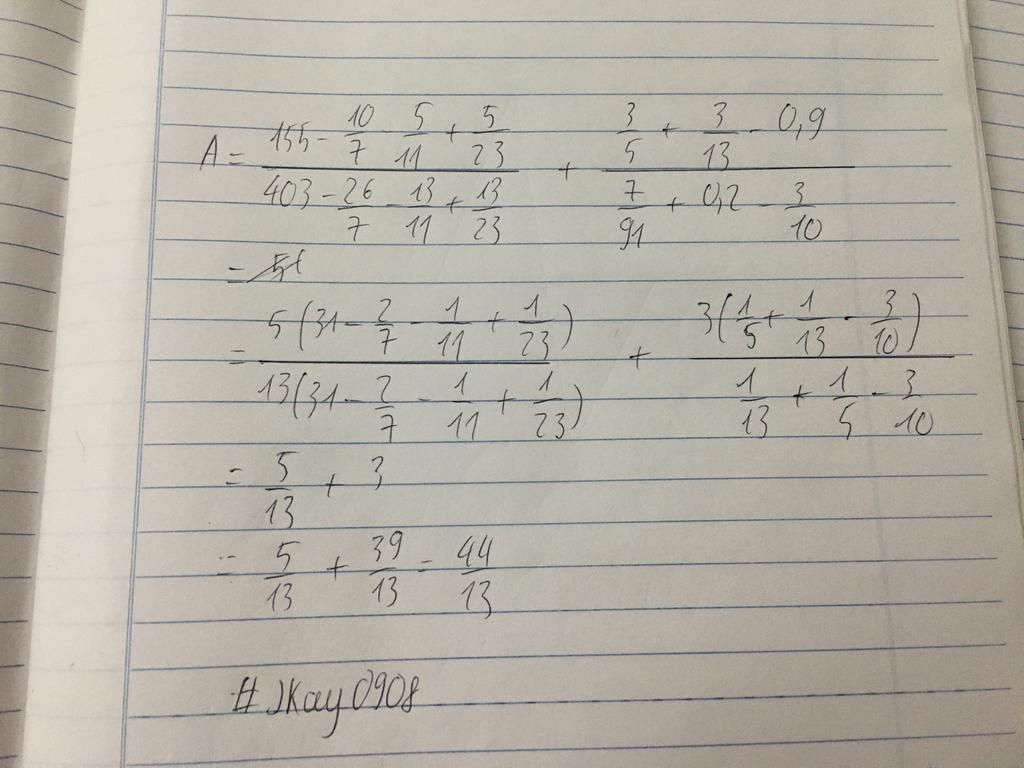 A = \frac{155 - \frac{10}{7} - \frac{5}{11} + \frac{5}{23}}{403 - \frac{26}{7} - \frac{13}{11} + \frac{13}{23}} + \frac{\frac{3}{5} + \frac{3}{13} - 0,9}{\frac{7}{91} + 0,2 - \frac{3}{10}}
=
= \frac{5(31 - \frac{2}{7} - \frac{1}{11} + \frac{1}{23})}{13(31 - \frac{2}{7} - \frac{1}{11} + \frac{1}{23})} + \frac{3(\frac{1}{5} + \frac{1}{13} - \frac{3}{10})}{\frac{1}{13} + \frac{1}{5} - \frac{3}{10}}
= \frac{5}{13} + 3
= \frac{5}{13} + \frac{39}{13} = \frac{44}{13}
# JKay0908